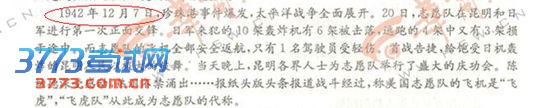 1942年12月7日，珍珠港事件爆发，太平洋战争全面展开。20日，志愿队在昆明和日
军进行第一次正面交锋，日军来犯的10架轰炸机有6架被击落，逃跑的4架中又有3架损
于途中，而志愿队 全部安全返航，只有1名驾驶员受轻伤。首战告捷，给饱受日机轰
炸的昆 舞。当天晚上，昆明各界人士为志愿队举行了盛大的庆功会。陈
来 禁涌出……报纸头版头条报道战斗经过，称美国志愿队的飞机是“飞
虎”，“飞虎队”从此成为志愿队的代称。
3773考试网
www.3773.com